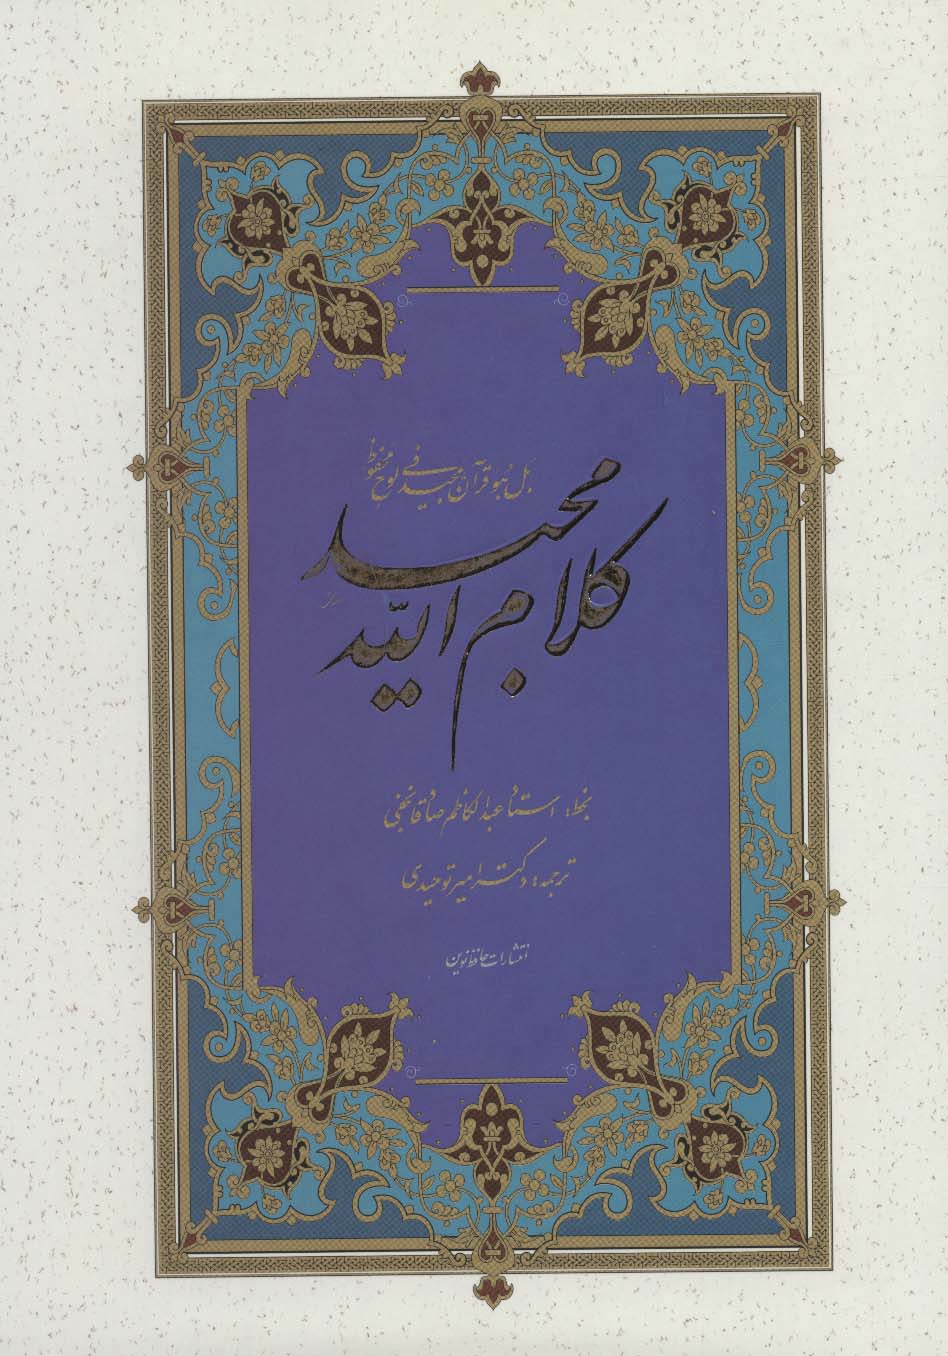 بل هو قرآن مجید فی لوح محفوظ
کلام الله مجید
بخط: استاد عبدالکاظم صادقانجفی
ترجمه: دکتر امیر توحیدی
انتشارات حافظ نوین